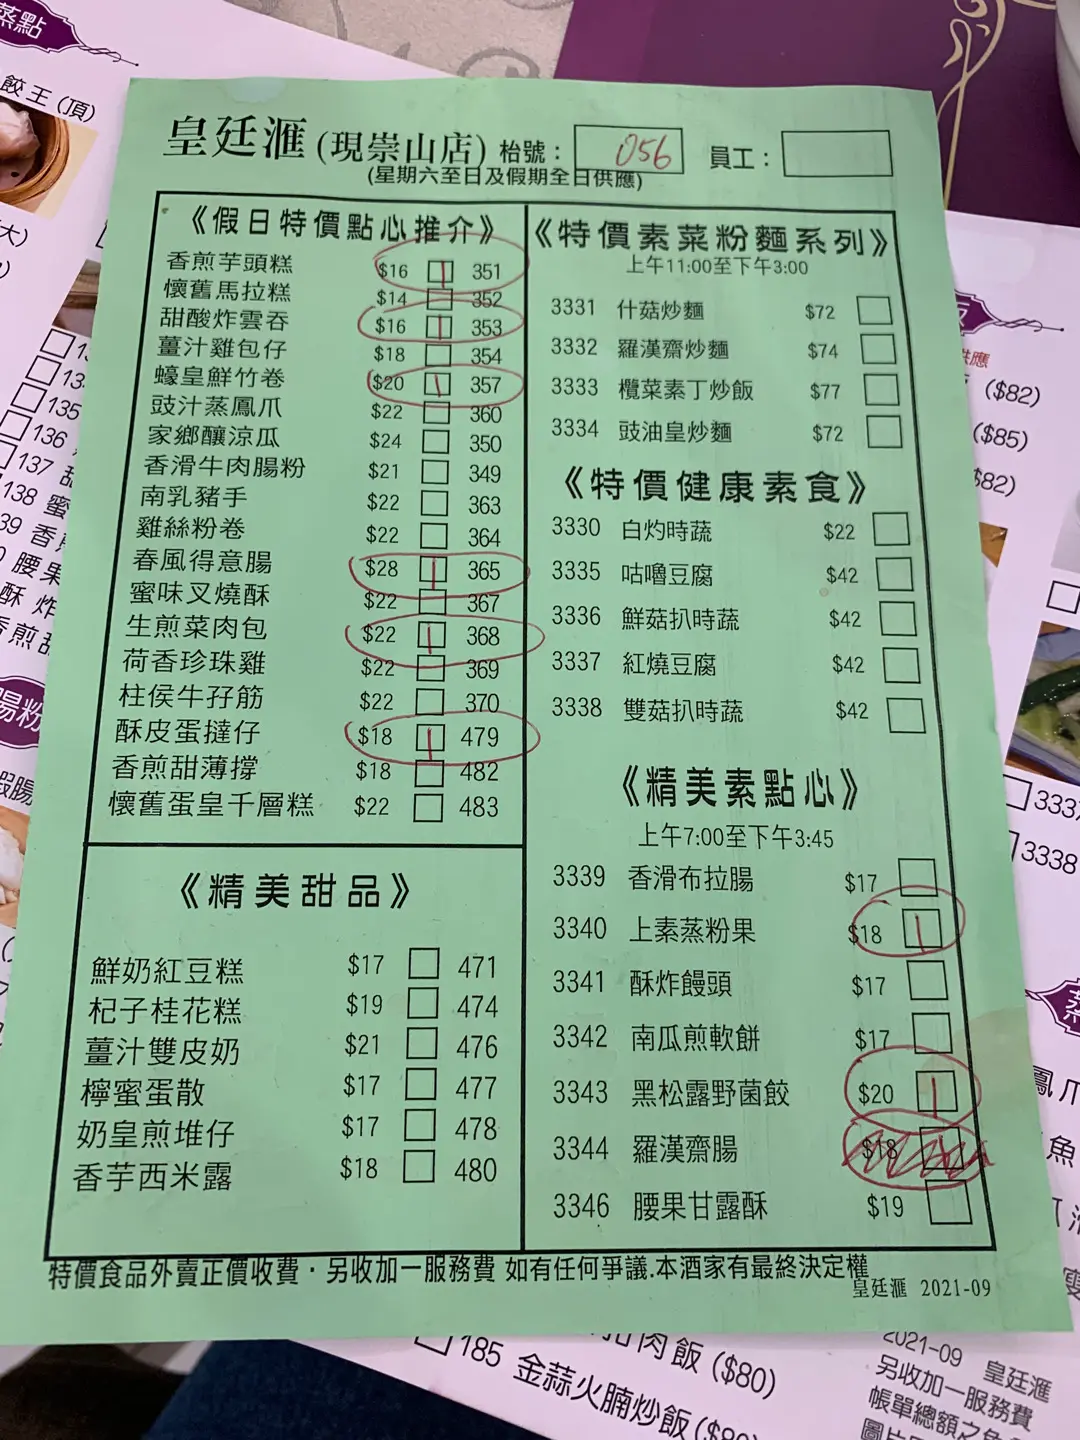 蒸點
餃王 (頂)
皇廷滙 (現崇山店) 枱號： 056 員工：
(星期六至日及假期全日供應)
《假日特價點心推介》
香煎芋頭糕 $16 351
懷舊馬拉糕 $14 352
甜酸炸雲吞 $16 353
薑汁雞包仔 $18 354
蠔皇鮮竹卷 $20 357
豉汁蒸鳳爪 $22 360
家鄉釀涼瓜 $24 350
香滑牛肉腸粉 $21 349
南乳豬手 $22 363
雞絲粉卷 $22 364
春風得意腸 $28 365
蜜味叉燒酥 $22 367
生煎菜肉包 $22 368
荷香珍珠雞 $22 369
柱侯牛孖筋 $22 370
酥皮蛋撻仔 $18 479
香煎甜薄撐 $18 482
懷舊蛋皇千層糕 $22 483
《精美甜品》
鮮奶紅豆糕 $17 471
杞子桂花糕 $19 474
薑汁雙皮奶 $21 476
檸蜜蛋散 $17 477
奶皇煎堆仔 $17 478
香芋西米露 $18 480
《特價素菜粉麵系列》
上午11:00至下午3:00
3331 什菇炒麵 $72
3332 羅漢齋炒麵 $74
3333 欖菜素丁炒飯 $77
3334 豉油皇炒麵 $72
《特價健康素食》
3330 白灼時蔬 $22
3335 咕嚕豆腐 $42
3336 鮮菇扒時蔬 $42
3337 紅燒豆腐 $42
3338 雙菇扒時蔬 $42
《精美素點心》
上午7:00至下午3:45
3339 香滑布拉腸 $17
3340 上素蒸粉果 $18
3341 酥炸饅頭 $17
3342 南瓜煎軟餅 $17
3343 黑松露野菌餃 $20
3344 羅漢齋腸 $18
3346 腰果甘露酥 $19
特價食品外賣正價收費．另收加一服務費 如有任何爭議.本酒家有最終決定權
皇廷滙 2021-09
大)
135
136
137 甜
138 蜜
39 香煎
腰果
酥 炸
香煎甜
腸粉
蝦腸
供應
($82)
($85)
$82)
3337
3338
蒸
鳳爪
魚
瘦
肉飯 ($80)
185 金蒜火腩炒飯
2021-09 皇廷滙
另收加一服務費
帳單總額之
圖片